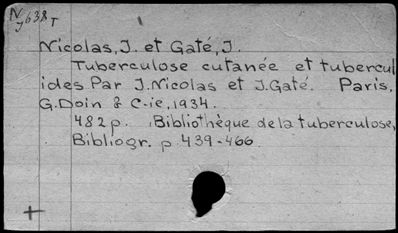 N
J638T
Nicolas, J. et Gaté, J.
Tuberculose cutanée et tubercul
ides Par J. Nicolas et J. Gaté. Paris,
G. Doin & C-ie, 1934.
482 p. (Bibliothèque de la tuberculose,
Bibliogr. p. 439-466.